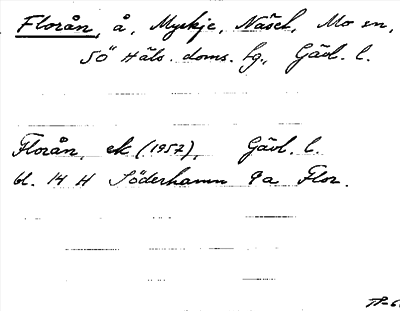 Florån, å, Myskje, Näsel, Mo sn,
SÖ Häls. doms. fg., Gävl. l.
Florån, ek (1957), Gävl. l.
bl. 14 H Söderhamn 9a Flor.